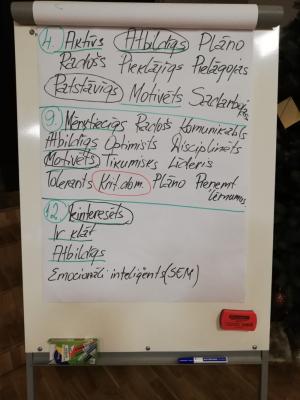 4. Aktīvs Atbildīgs Plāno
Radošs Pieklājīgs Pielāgojas
Patstāvīgs Motivēts Sadarbojas
9. Mērķtiecīgs Radošs Komunikabls
Atbildīgs Optimists Disciplinēts
Motivēts Tikumisks Līderis
Tolerants Krit.dom. Plāno Pieņemt
lēmumus
12. Ieinteresēts
Ir klāt
Atbildīgs
Emocionāli inteliģents (SEM)